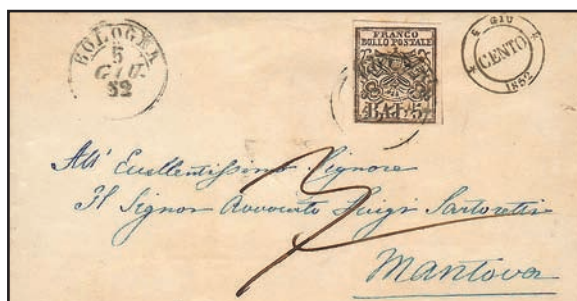 BOLOGNA
5
GIU.
52
FRANCO
BOLLO POSTALE
BAJ. 5
4 GIU
CENTO
1852
All' Eccellentissimo Signore
Il Signor Avvocato Luigi Sartoretti
Mantova
3